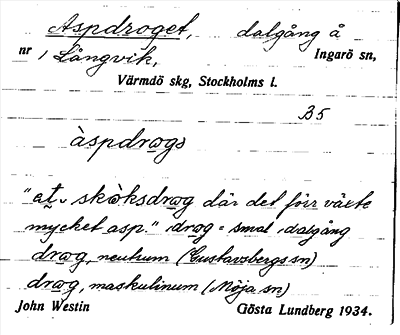 Aspdroget, dalgång å
nr 1 Långvik, Ingarö sn,
Värmdö skg, Stockholms l.
B5
àspdrog
"at skòksdrog där det förr växte
mycket asp." drog = smal dalgång
drog, neutrum (Gustavsbergs sn)
drog, maskulinum (Möja sn)
John Westin Gösta Lundberg 1934.